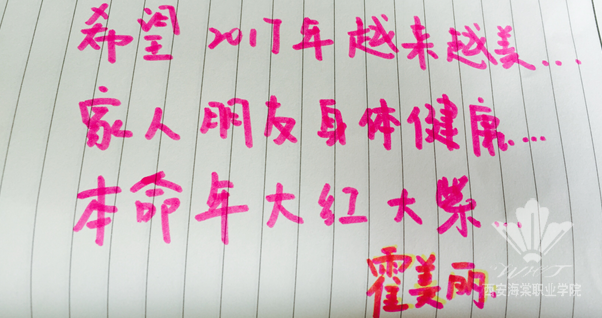 希望 2017年越来越美...
家人朋友身体健康...
本命年大红大紫...
霍美丽.
西安海棠职业学院